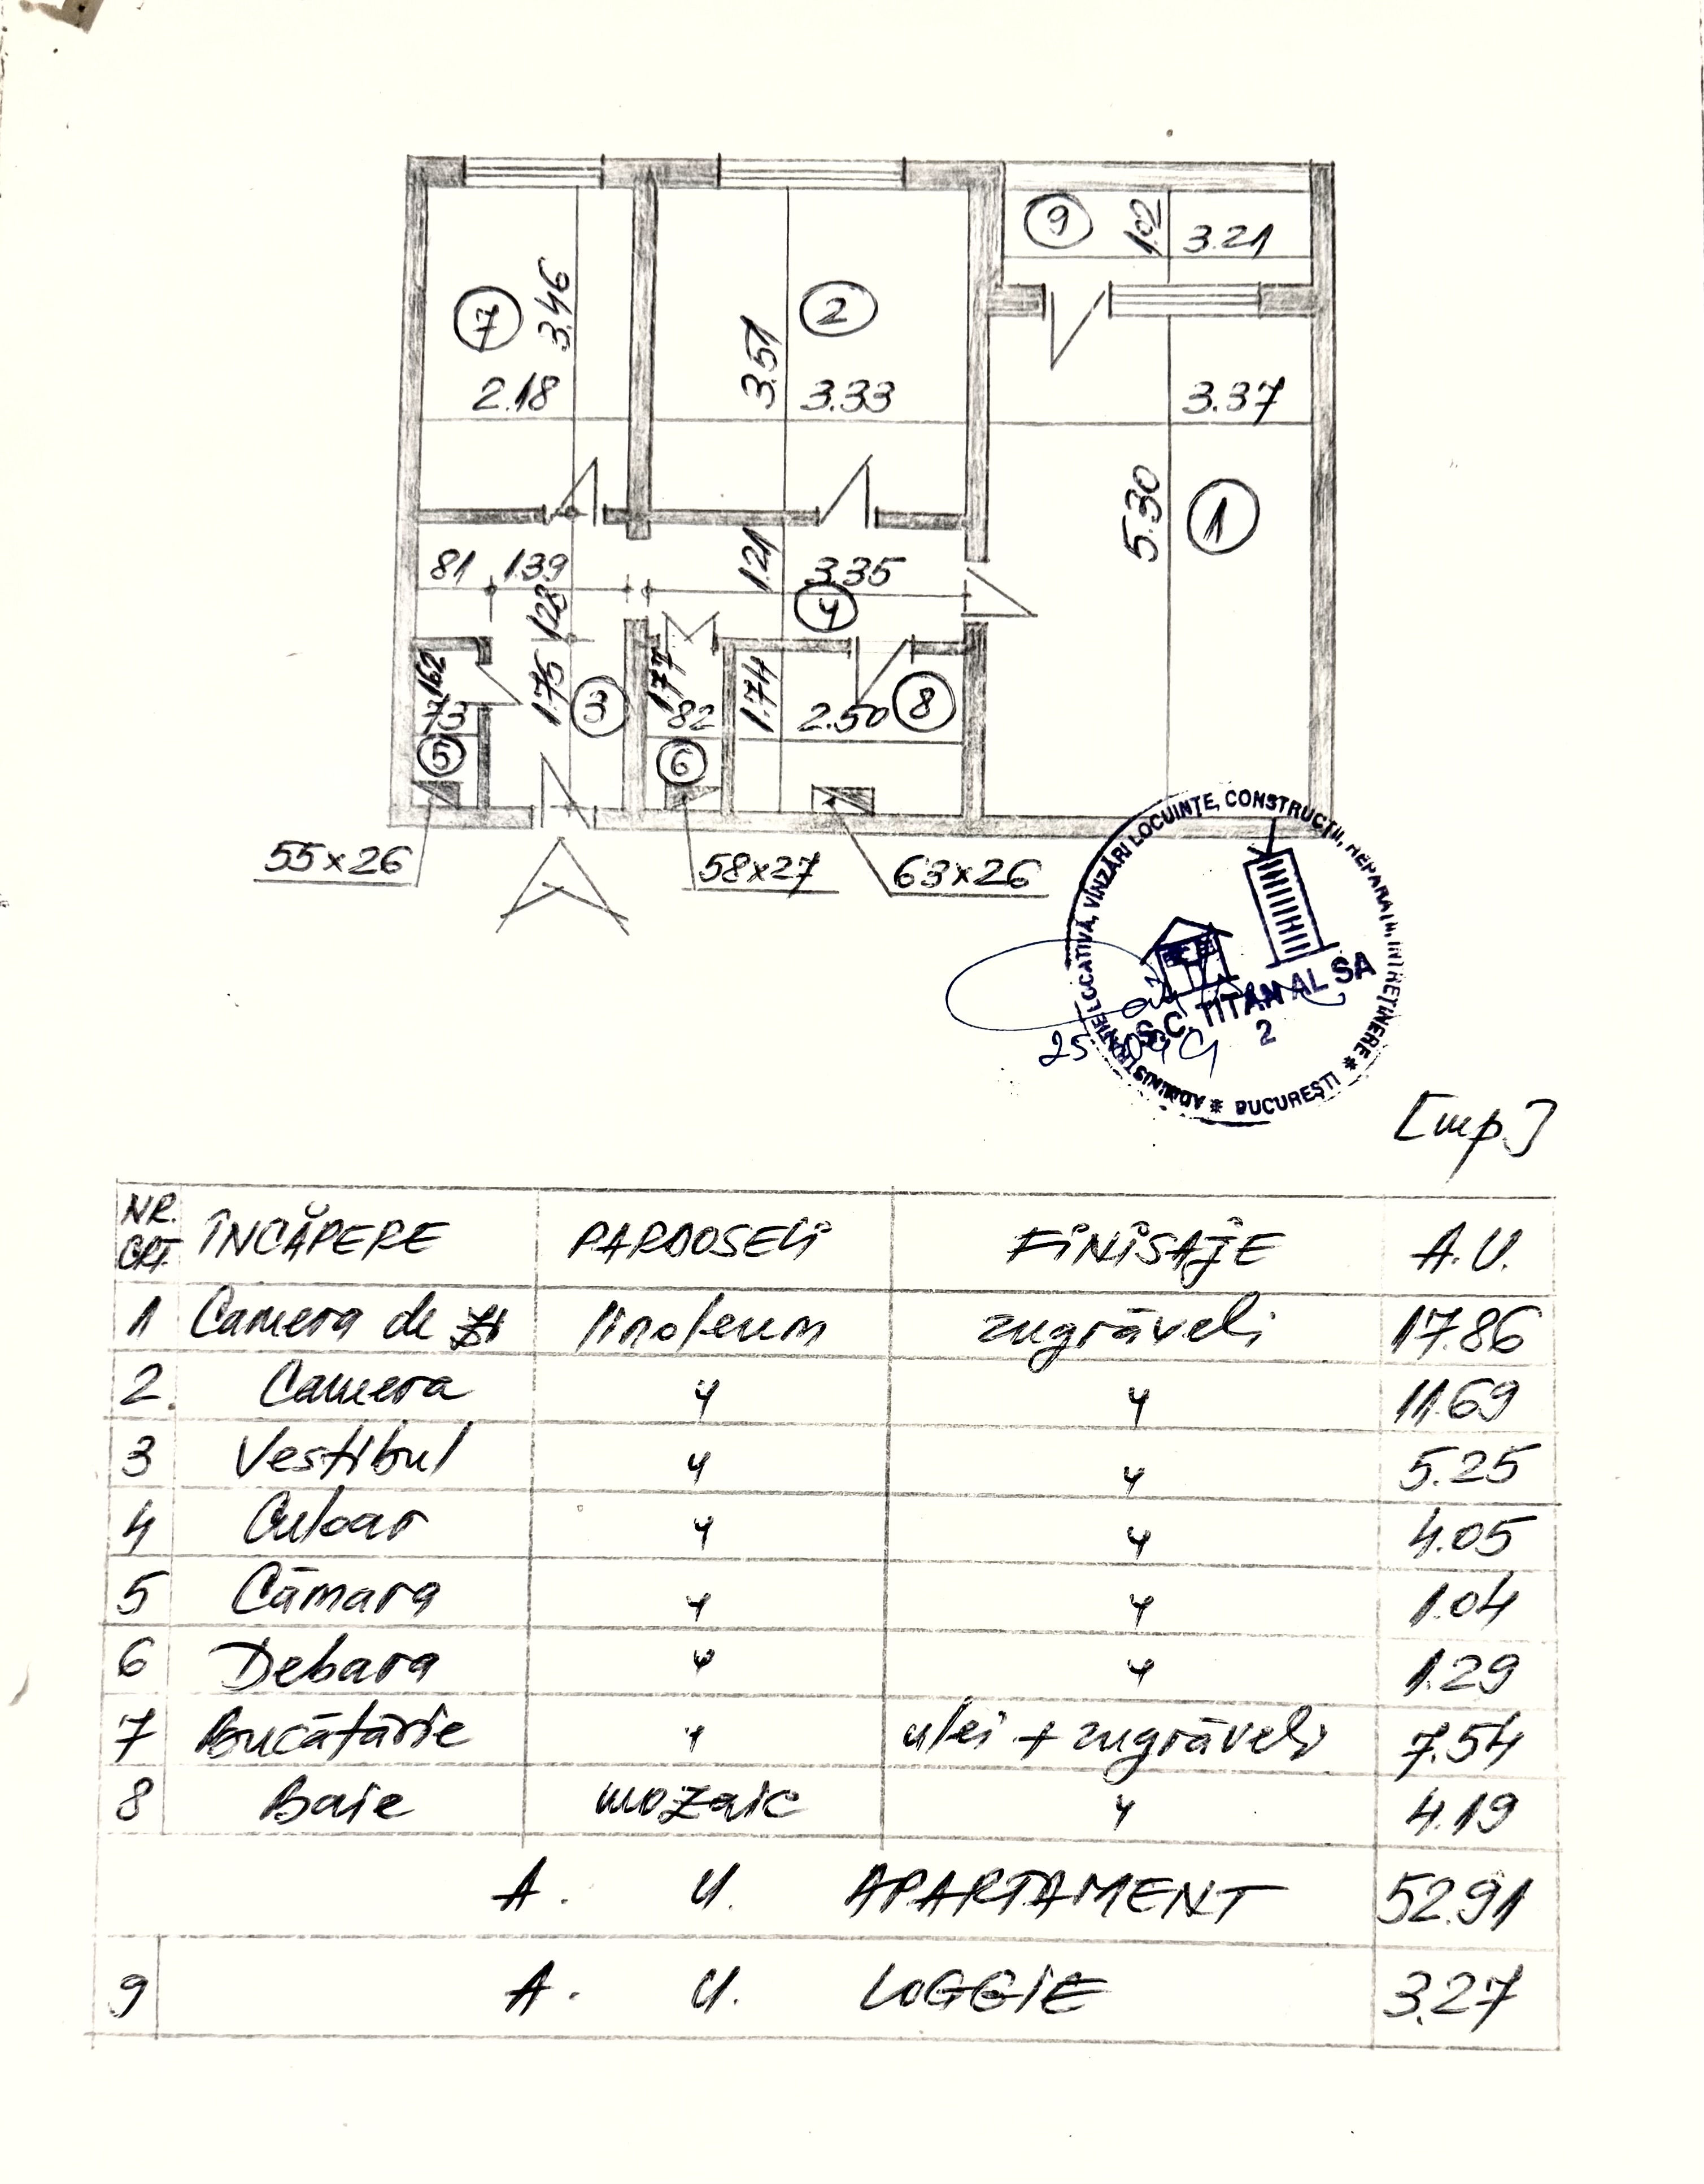 9
1.02
3.21
7
3.46
2.18
2
3.51
3.33
3.37
5.30
1
81
1.39
1.28
1.21
3.35
4
1.62
73
5
1.75
3
1.77
82
6
1.74
2.50
8
55x26
58x27
63x26
ADMINISTRAȚIE LOCATIVĂ, VÎNZĂRI LOCUINȚE, CONSTRUCȚII, REPARAȚII, INTREȚINERE * BUCUREȘTI *
S.C. TITAN AL SA
2
25
[mp.]
NR. CRT. ÎNCĂPERE PARDOSELI FINISAJE A.U.
1 Camera de zi linoleum zugrăveli 17.86
2. Camera " " 11.69
3 Vestibul " " 5.25
4 Culoar " " 4.05
5 Cămara " " 1.04
6 Debara " " 1.29
7 Bucătărie " ulei + zugrăveli 7.54
8 Baie mozaic " 4.19
A. U. APARTAMENT 52.91
9 A. U. LOGGIE 3.27